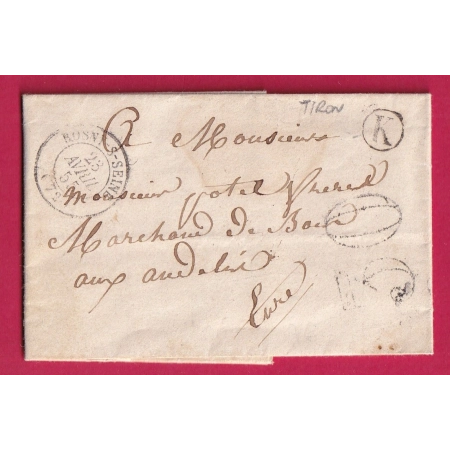 TIRON
K
ROSNY-S-SEINE
23
AVRIL
A Monsieur
Monsieur potel
Marchand de Boi
aux andelis
Eure